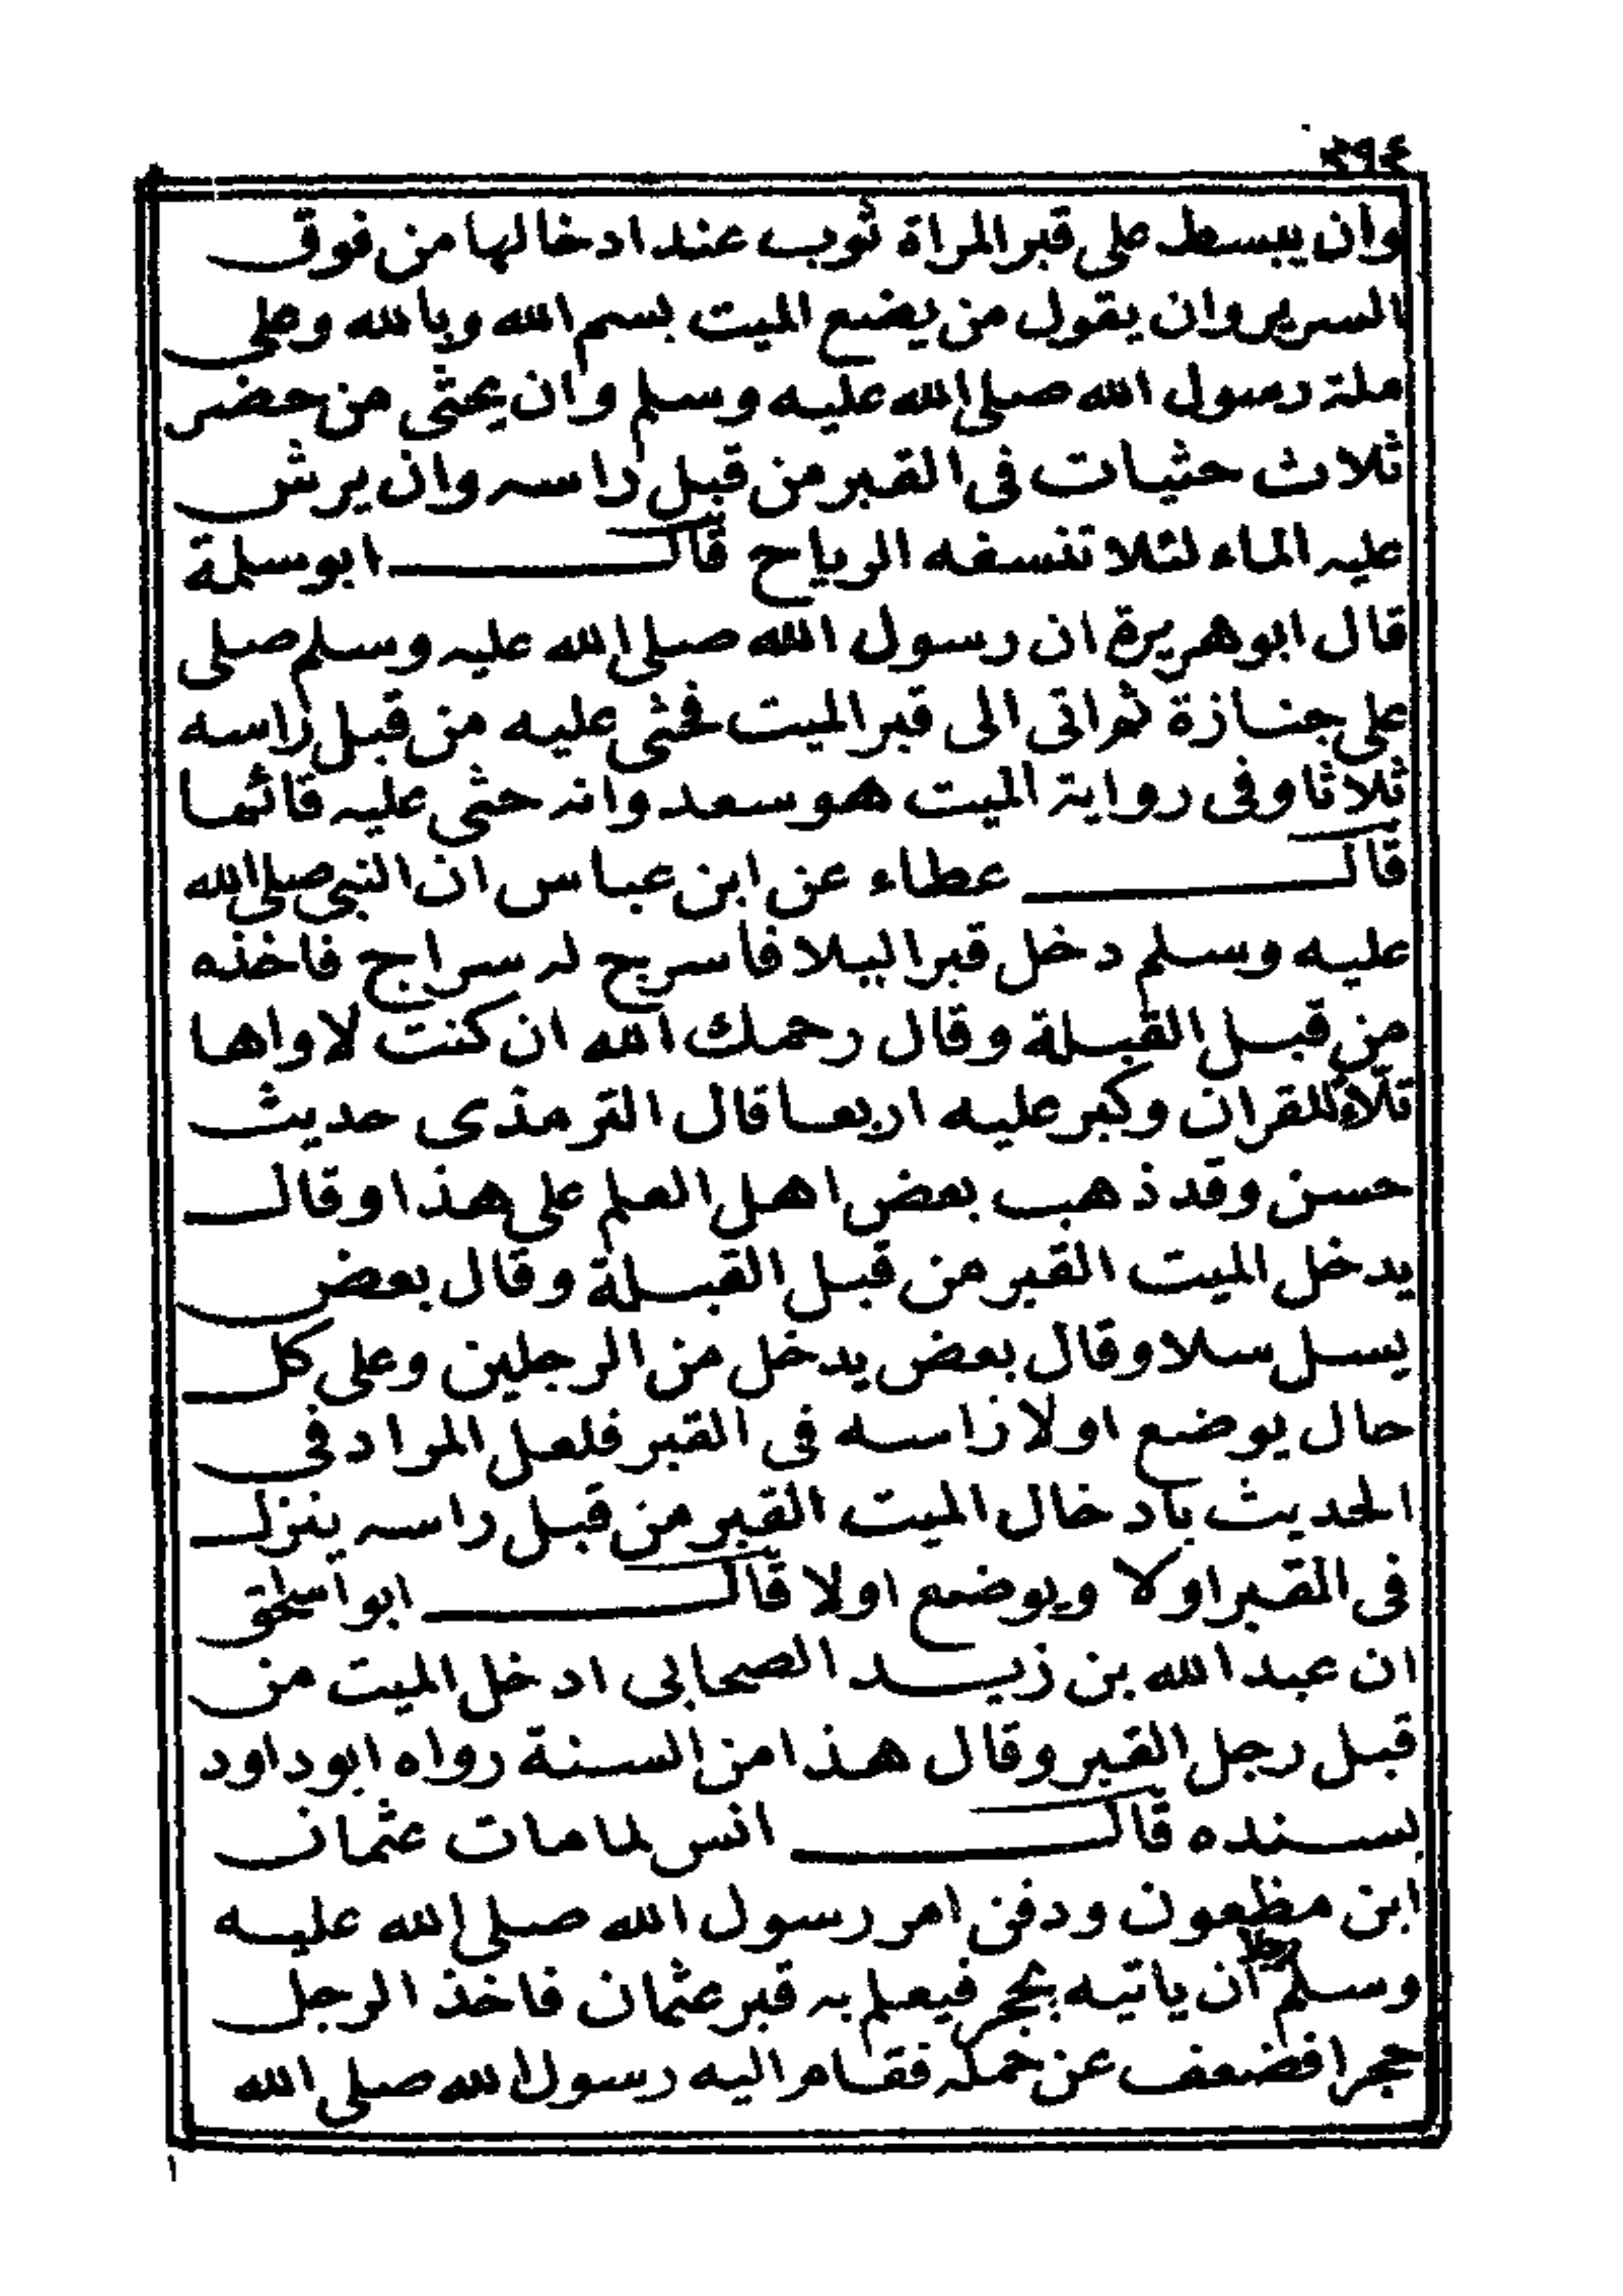 ٢٩٤
وان يبسط على قبر المراة ثوب عند ادخالها من فوق
السرير وان يقول من يضع الميت بسم الله وبالله وعلى
ملة رسول الله صلى الله عليه وسلم وان يحثى من حضر
ثلاث حثيات فى القبر من قبل راسه وان يرش
عليه الماء لئلا تنسفه الرياح قال ابو سلمة
قال ابو هريرة ان رسول الله صلى الله عليه وسلم صلى
على جنازة ثم اتى الى قبر الميت فحثى عليه من قبل راسه
ثلاثا وفى رواية الميت هو سعد وانه حثى عليه قائما
قال عطاء عن ابن عباس ان النبى صلى الله
عليه وسلم دخل قبرا ليلا فأسرج له سراج فاخذه
من قبل القبلة وقال رحمك الله ان كنت لاواها
تلاء للقران وكبر عليه اربعا قال الترمذى حديث
حسن وقد ذهب بعض اهل العلم على هذا وقال
يدخل الميت القبر من قبل القبلة وقال بعض
يسل سلا وقال بعض يدخل من الرجلين وعلى كل
حال يوضع اولا راسه فى القبر فلعل المراد فى
الحديث بادخال الميت القبر من قبل راسه ينزل
فى القبر اولا ويوضع اولا قال ابو اسحق
ان عبد الله بن زيد الصحابى ادخل الميت من
قبل رجل القبر وقال هذا من السنة رواه ابو داود
بسنده قال انس لما مات عثمان
ابن مظعون ودفن امر رسول الله صلى الله عليه
وسلم رجلا ان ياتيه بحجر فيعلم به قبر عثمان فاخذ الرجل
حجرا فضعف عن حمله فقام اليه رسول الله صلى الله